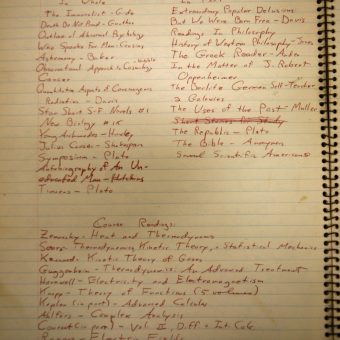 In Whole
The Immoralist - Gide
Death Be Not Proud - Gunther
Outline of Abnormal Psychology
Who Speaks For Man - Cousins
Astronomy - Baker
Observational Approach to Cosmology - Hubble
Cancer
Quantitative Aspects of Carcinogenic
Radiation - Davis
Star Short S-F Novels #1
New Biology # 15
Young Archimedes - Huxley
Julius Caesar - Shakespear
Symposium - Plato
Autobiography of An Un-
educated Man - Hutchins
Timeus - Plato
In Part
Extraordinary Popular Delusions
But We Were Born Free - Davis
Readings In Philosophy
History of Western Philosophy - Jones
The Greek Reader -
In the Matter of J. Robert
Oppenheimer
The Berlitz German Self-Teacher
2 Galaxies
The Uses of the Past - Muller
Short Stories for Study
The Republic - Plato
The Bible -
Several Scientific Americans
Course Readings:
Zemansky - Heat and Thermodynamics
Sears - Thermodynamics, Kinetic Theory, + Statistical Mechanics
Kennard - Kinetic Theory of Gases
Guggenheim - Thermodynamics: An Advanced Treatment
Harnwell - Electricity and Electromagnetism
Knopp - Theory of Functions (5 volumes)
Kaplan (in part) - Advanced Calculus
Ahlfors - Complex Analysis
Courant (in part) - Vol. II, Diff. + Int. Calc.
Rogers - Electric Fields